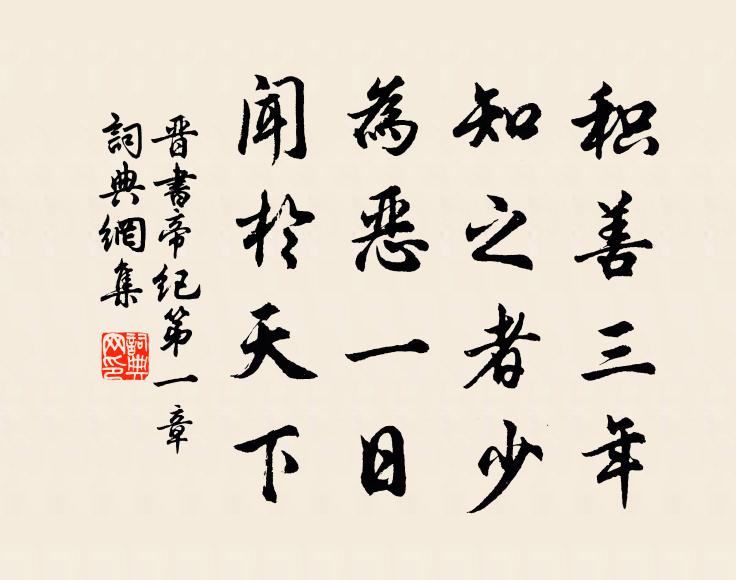 积善三年
知之者少
為惡一日
聞於天下
晋書帝紀第一章
詞典網集
詞典
网印